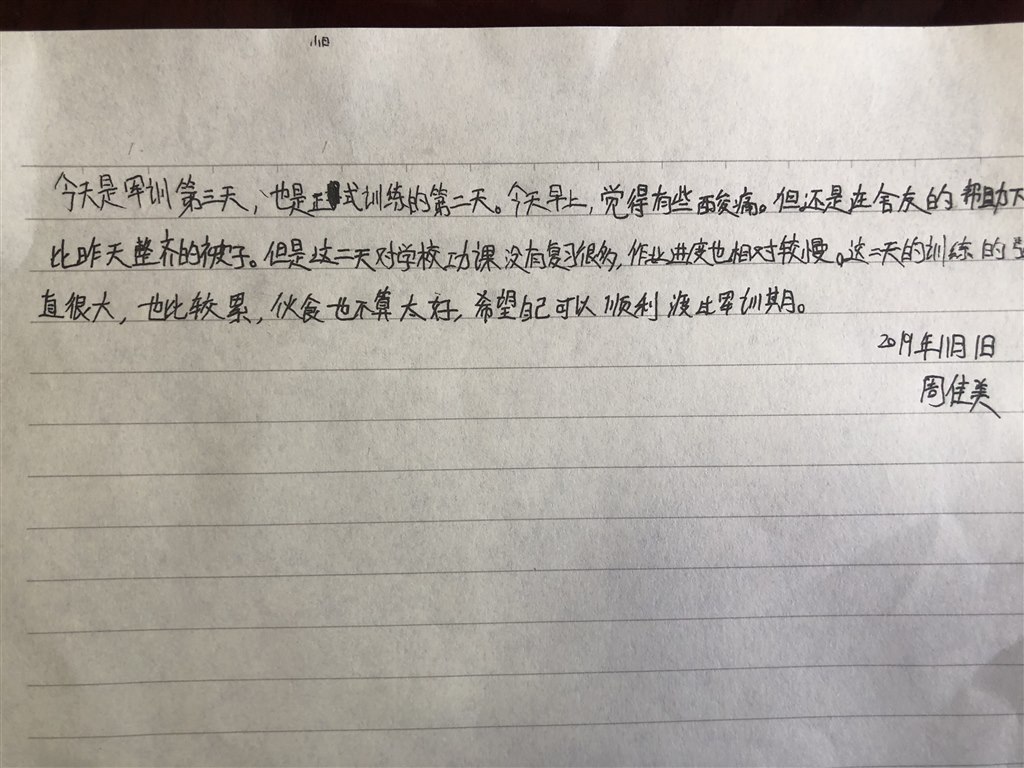 今天是军训第三天，也是正式训练的第二天。今天早上，觉得有些酸痛。但还是在舍友的帮助下
比昨天整齐的被子。但是这二天对学校功课没有复习很多，作业进度也相对较慢。这二天的训练的
直很大，也比较累，伙食也不算太好，希望自己可以顺利渡过军训期。
2019年11月1日
周佳美